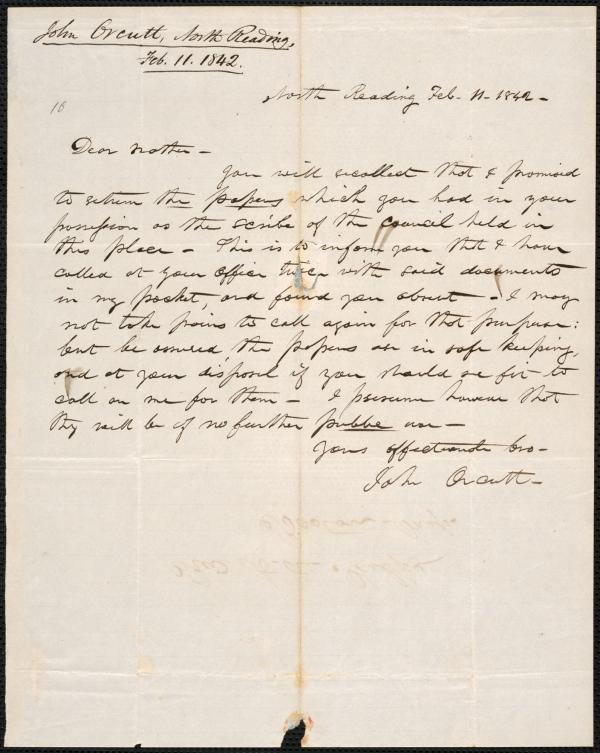 John Orcutt, North Reading,
Feb. 11. 1842.
18
North Reading Feb. 11. 1842 —
Dear Brother —
You will recollect that I promised
to return the papers which you had in your
possession as the scribe of the council held in
this place — This is to inform you that I have
called at your office twice with said documents
in my pocket, and found you absent — I may
not take pains to call again for that purpose:
but be assured, the papers are in safe keeping,
and at your disposal if you should see fit to
call on me for them — I presume however that
they will be of no further public use —
Yours affectionate bro —
John Orcutt —